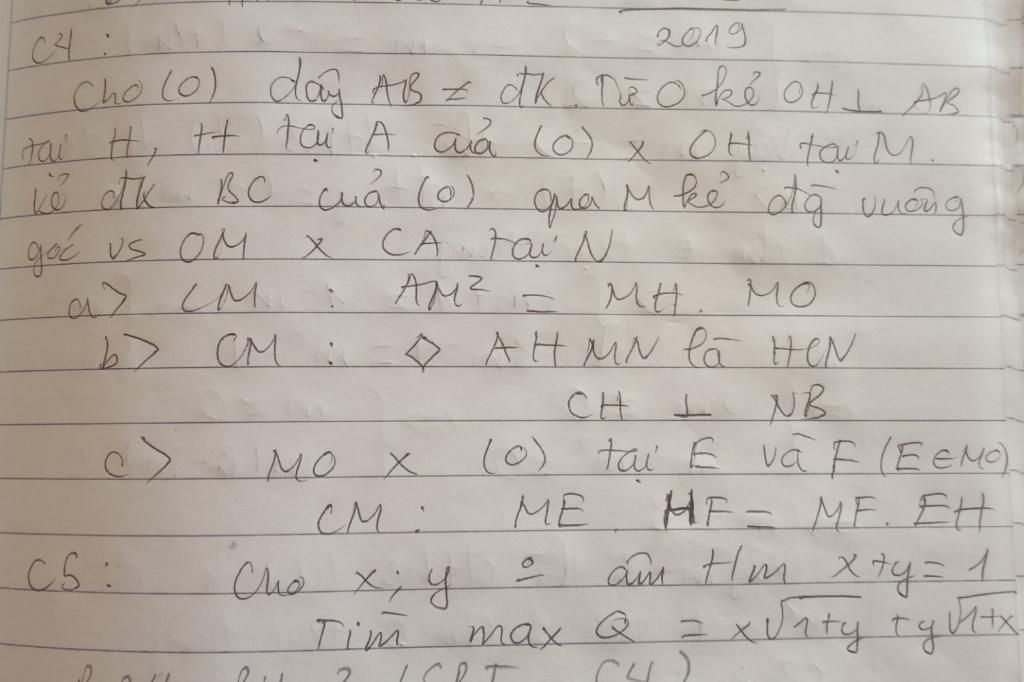 2019
C4 :
Cho (O) dây AB ≠ đk. Từ O kẻ OH ⊥ AB
tại H, tt tại A của (O) x OH tại M.
kẻ đk BC của (O) qua M kẻ đg vuông
góc vs OM x CA tại N
a> CM : AM² = MH. MO
b> CM : ◇ AHMN là HCN
CH ⊥ NB
c> MO x (O) tại E và F (E∈MO)
CM : ME. HF = MF. EH
C5 : Cho x; y o âm t/m x+y=1
Tìm max Q = x√1+y + y√1+x